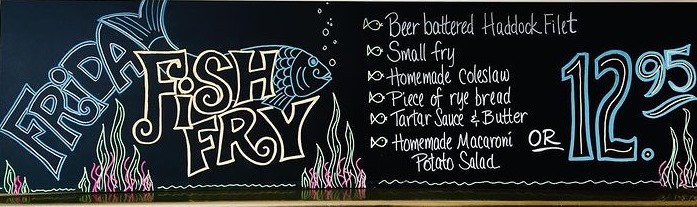 FRIDAY
FiSH
FRY
Beer battered Haddock Filet
Small fry
Homemade Coleslaw
Piece of rye bread
Tartar Sauce & Butter
Homemade Macaroni OR
Potato Salad
12.95